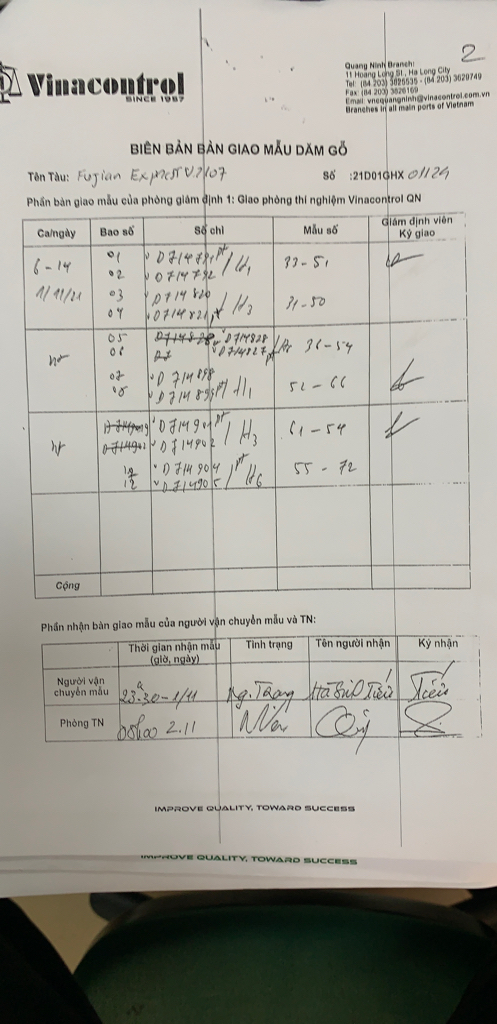 2
Vinacontrol
SINCE 1957
Quang Ninh Branch:
11 Hoang Long St., Ha Long City
Tel: (84.203) 3825535 - (84.203) 3629749
Fax: (84.203) 3826169
Email: vnequangninh@vinacontrol.com.vn
Branches in all main ports of Vietnam
BIÊN BẢN BÀN GIAO MẪU DĂM GỖ
Tên Tàu: Fujian Express V2107 Số :21D01GHX 01124
Phần bàn giao mẫu của phòng giám định 1: Giao phòng thí nghiệm Vinacontrol QN
Ca/ngày Bao số Số chì Mẫu số Giám định viên Ký giao
6-14 01 D714791 pt / H1 33-51
02 D714792
1/11/21 03 D714820 / H3 31-50
04 D714821 pt
05 D714828 36-54
06 D714827 pt
07 D714898 / H1 52-66
08 D714899 pt
D714901 pt / H3 61-54
D714902
D714904 pt / H6 55-72
12 D714905
Cộng
Phần nhận bàn giao mẫu của người vận chuyển mẫu và TN:
Thời gian nhận mẫu (giờ, ngày) Tình trạng Tên người nhận Ký nhận
Người vận chuyển mẫu 23.30-1/11 Ng.Trạng Tiếu Tiếu
Phòng TN 08h00 2.11
IMPROVE QUALITY, TOWARD SUCCESS
IMPROVE QUALITY, TOWARD SUCCESS